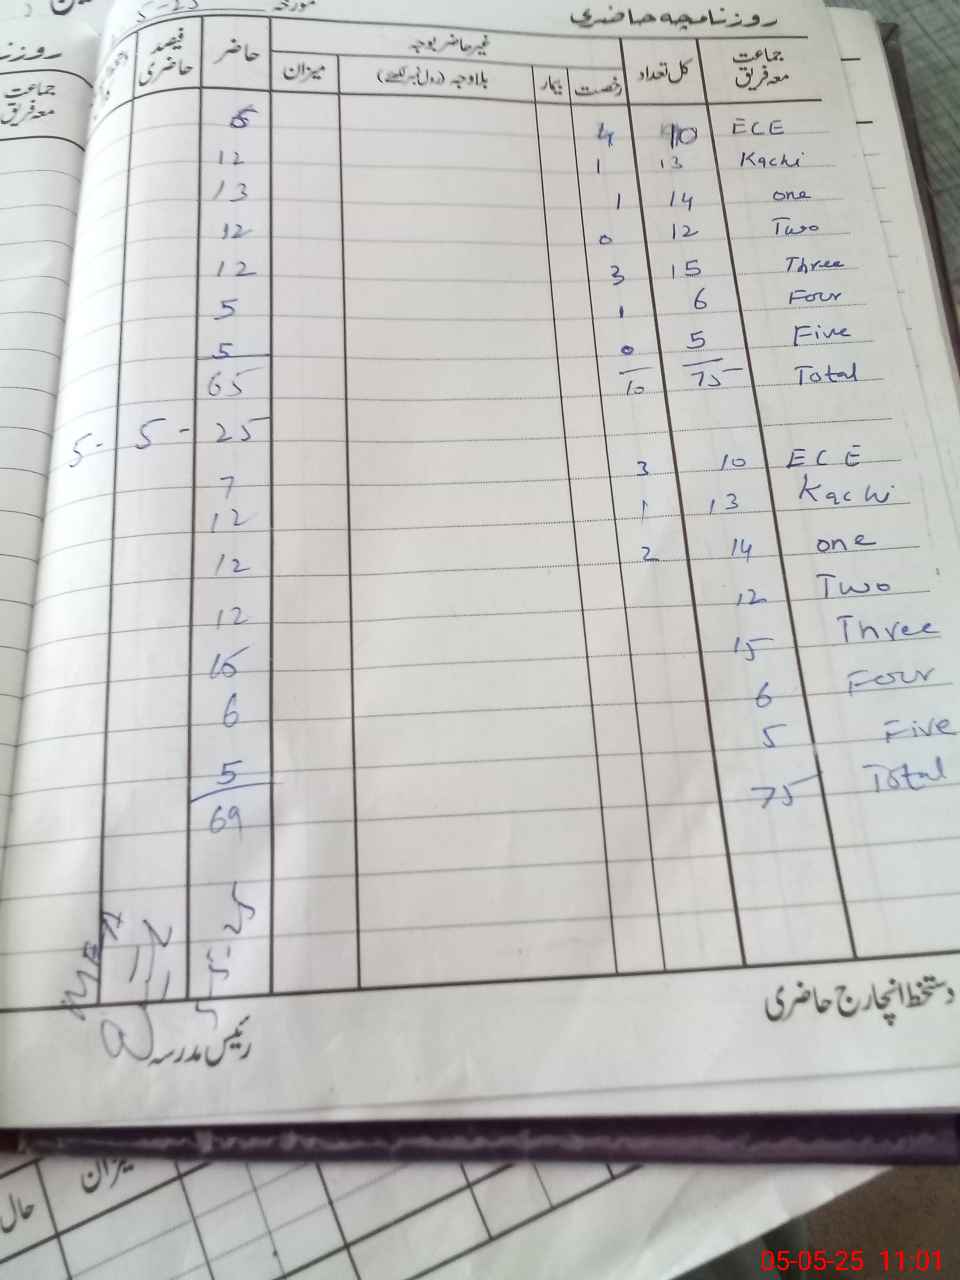 روزنامچہ حاضری
مورخہ 5-25
جماعت معہ فریق کل تعداد غیر حاضر بوجہ حاضر فیصد حاضری
رخصت بیمار بلاوجہ (رول نمبر لکھئے) میزان
ECE 10 4 6
Kachi 13 1 12
one 14 1 13
Two 12 0 12
Three 15 3 12
Four 6 1 5
Five 5 0 5
Total 75 10 65
5- 5- 25
ECE 10 3 7
Kachi 13 1 12
one 14 2 12
Two 12 12
Three 15 15
Four 6 6
Five 5 5
Total 75 69
دستخط انچارج حاضری
رئیس مدرسہ
جماعت
معہ فریق
میزان
حال
05-05-25 11:01